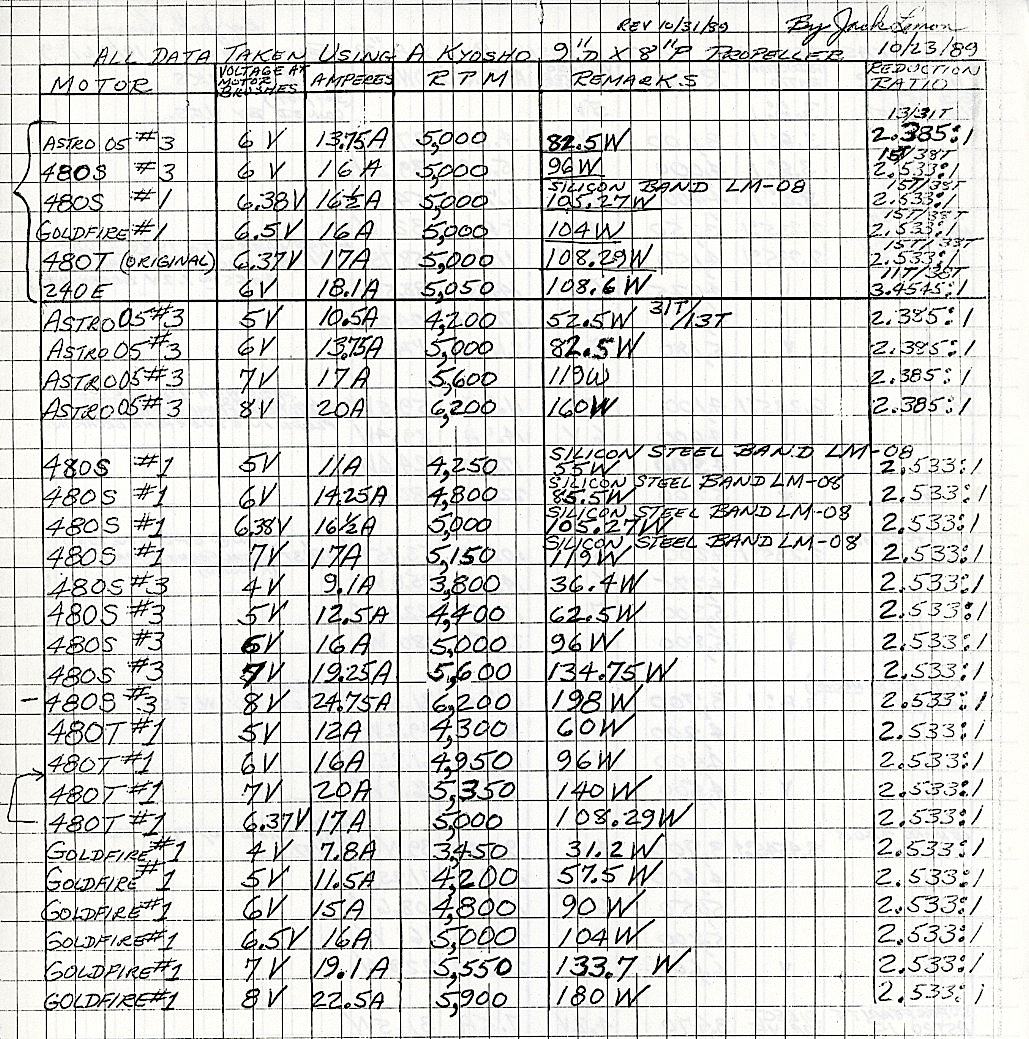 REV 10/31/89 By Jack Lemon
ALL DATA TAKEN USING A KYOSHO 9"D X 8"P PROPELLER 10/23/89
MOTOR VOLTAGE AT MOTOR BRUSHES AMPERES RPM REMARKS REDUCTION RATIO
13/31T
ASTRO 05 #3 6V 13.75A 5,000 82.5W 2.385:1
15T/38T
480S #3 6V 16A 5,000 96W 2.533:1
SILICON BAND LM-08 15T/38T
480S #1 6.38V 16½A 5,000 105.27W 2.533:1
15T/38T
GOLDFIRE #1 6.5V 16A 5,000 104W 2.533:1
15T/38T
480T (ORIGINAL) 6.37V 17A 5,000 108.29W 2.533:1
11T/38T
240E 6V 18.1A 5,050 108.6W 3.4545:1
ASTRO 05 #3 5V 10.5A 4,200 52.5W 31T/13T 2.385:1
ASTRO 05 #3 6V 13.75A 5,000 82.5W 2.385:1
ASTRO 05 #3 7V 17A 5,600 119W 2.385:1
ASTRO 05 #3 8V 20A 6,200 160W 2.385:1
SILICON STEEL BAND LM-08
480S #1 5V 11A 4,250 55W 2.533:1
SILICON STEEL BAND LM-08
480S #1 6V 14.25A 4,800 85.5W 2.533:1
SILICON STEEL BAND LM-08
480S #1 6.38V 16½A 5,000 105.27W 2.533:1
SILICON STEEL BAND LM-08
480S #1 7V 17A 5,150 119W 2.533:1
480S #3 4V 9.1A 3,800 36.4W 2.533:1
480S #3 5V 12.5A 4,400 62.5W 2.533:1
480S #3 6V 16A 5,000 96W 2.533:1
480S #3 7V 19.25A 5,600 134.75W 2.533:1
- 480S #3 8V 24.75A 6,200 198W 2.533:1
480T #1 5V 12A 4,300 60W 2.533:1
480T #1 6V 16A 4,950 96W 2.533:1
480T #1 7V 20A 5,350 140W 2.533:1
480T #1 6.37V 17A 5,000 108.29W 2.533:1
GOLDFIRE #1 4V 7.8A 3,450 31.2W 2.533:1
GOLDFIRE #1 5V 11.5A 4,200 57.5W 2.533:1
GOLDFIRE #1 6V 15A 4,800 90W 2.533:1
GOLDFIRE #1 6.5V 16A 5,000 104W 2.533:1
GOLDFIRE #1 7V 19.1A 5,550 133.7W 2.533:1
GOLDFIRE #1 8V 22.5A 5,900 180W 2.533:1